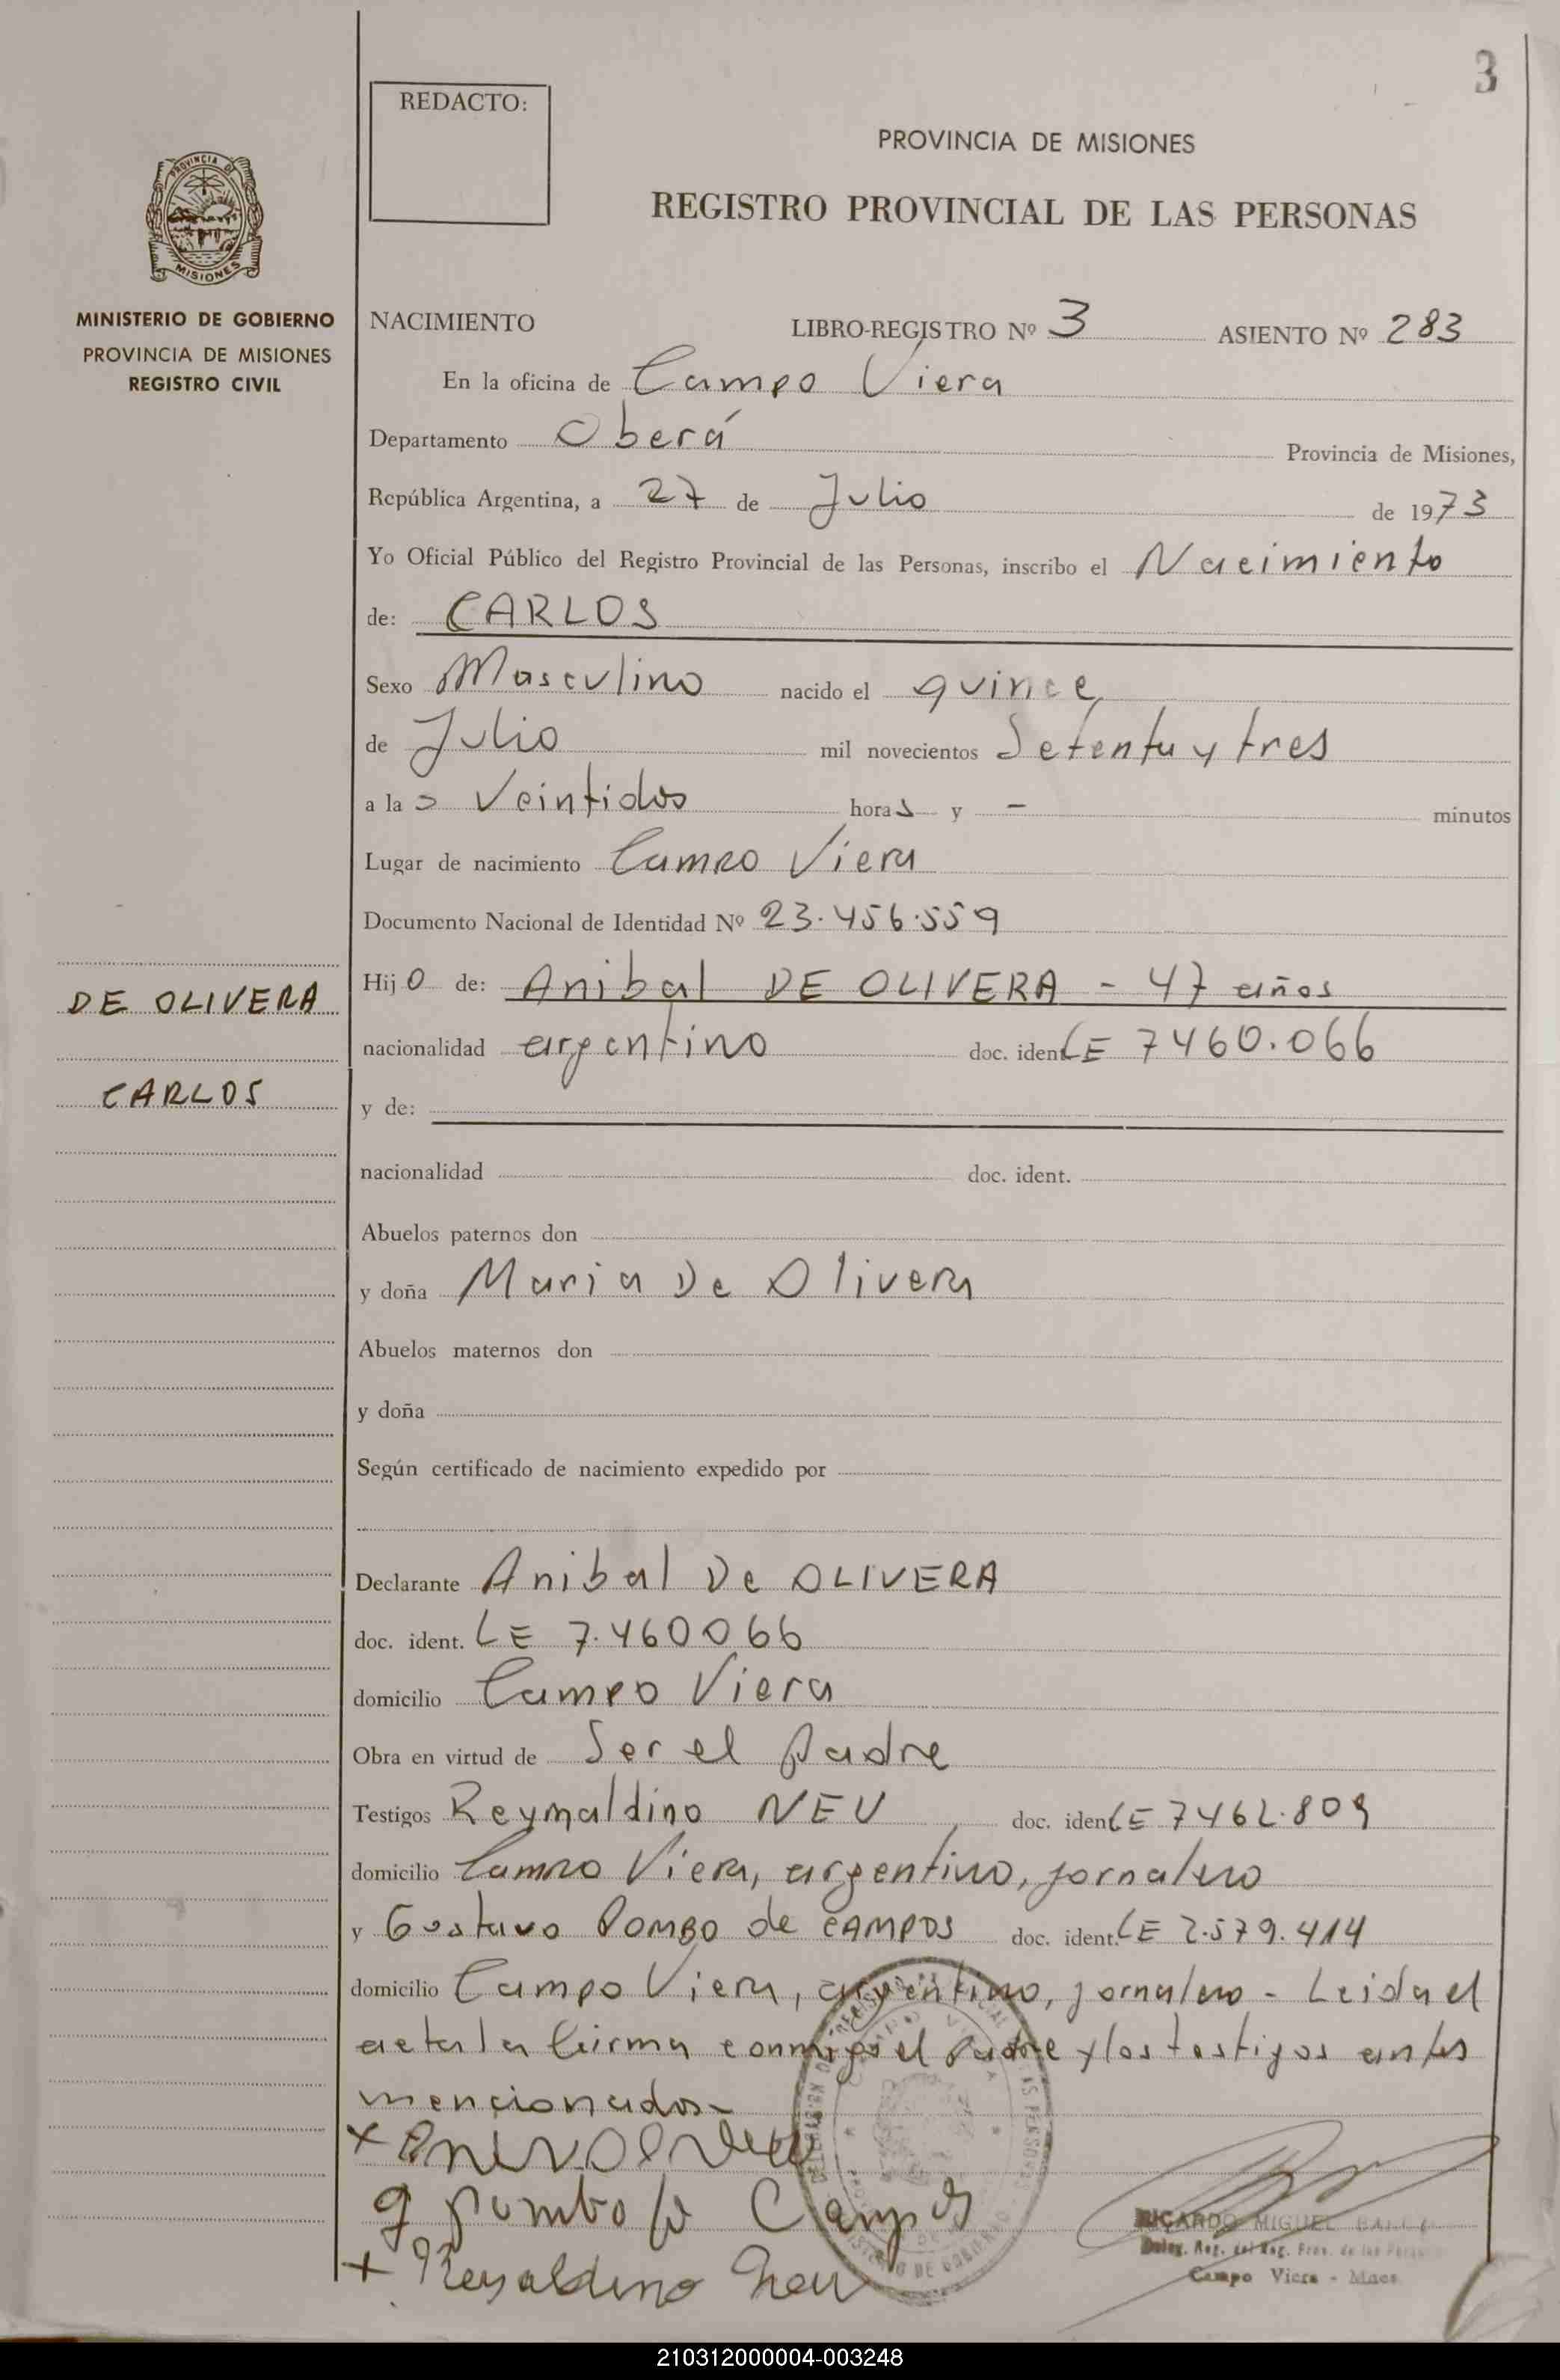 3
REDACTO:
PROVINCIA DE MISIONES
REGISTRO PROVINCIAL DE LAS PERSONAS
PROVINCIA DE
MISIONES
MINISTERIO DE GOBIERNO
PROVINCIA DE MISIONES
REGISTRO CIVIL
NACIMIENTO LIBRO-REGISTRO Nº 3 ASIENTO Nº 283
En la oficina de Campo Viera
Departamento Oberá Provincia de Misiones,
República Argentina, a 27 de Julio de 1973
Yo Oficial Público del Registro Provincial de las Personas, inscribo el Nacimiento
de: CARLOS
Sexo Masculino nacido el quince
de Julio mil novecientos Setenta y tres
a las veintidos horas y - minutos
Lugar de nacimiento Campo Viera
Documento Nacional de Identidad Nº 23.456.559
DE OLIVERA
CARLOS
Hijo de: Anibal DE OLIVERA - 47 años
nacionalidad argentino doc. ident. LE 7460.066
y de:
nacionalidad doc. ident.
Abuelos paternos don
y doña Maria De Olivera
Abuelos maternos don
y doña
Según certificado de nacimiento expedido por
Declarante Anibal De OLIVERA
doc. ident. LE 7.460066
domicilio Campo Viera
Obra en virtud de Ser el padre
Testigos Reymaldino NEU doc. ident. LE 7462.809
domicilio Campo Viera, argentino, jornalero
y Gustavo POMBO de CAMPOS doc. ident. LE 2.579.414
domicilio Campo Viera, argentino, jornalero - Leida el
acta la firma conmigo el padre y los testigos antes
mencionados-
g pombo de Campos
+ Reynaldino Neu
RICARDO MIGUEL
Campo Viera - Mnes.
210312000004-003248